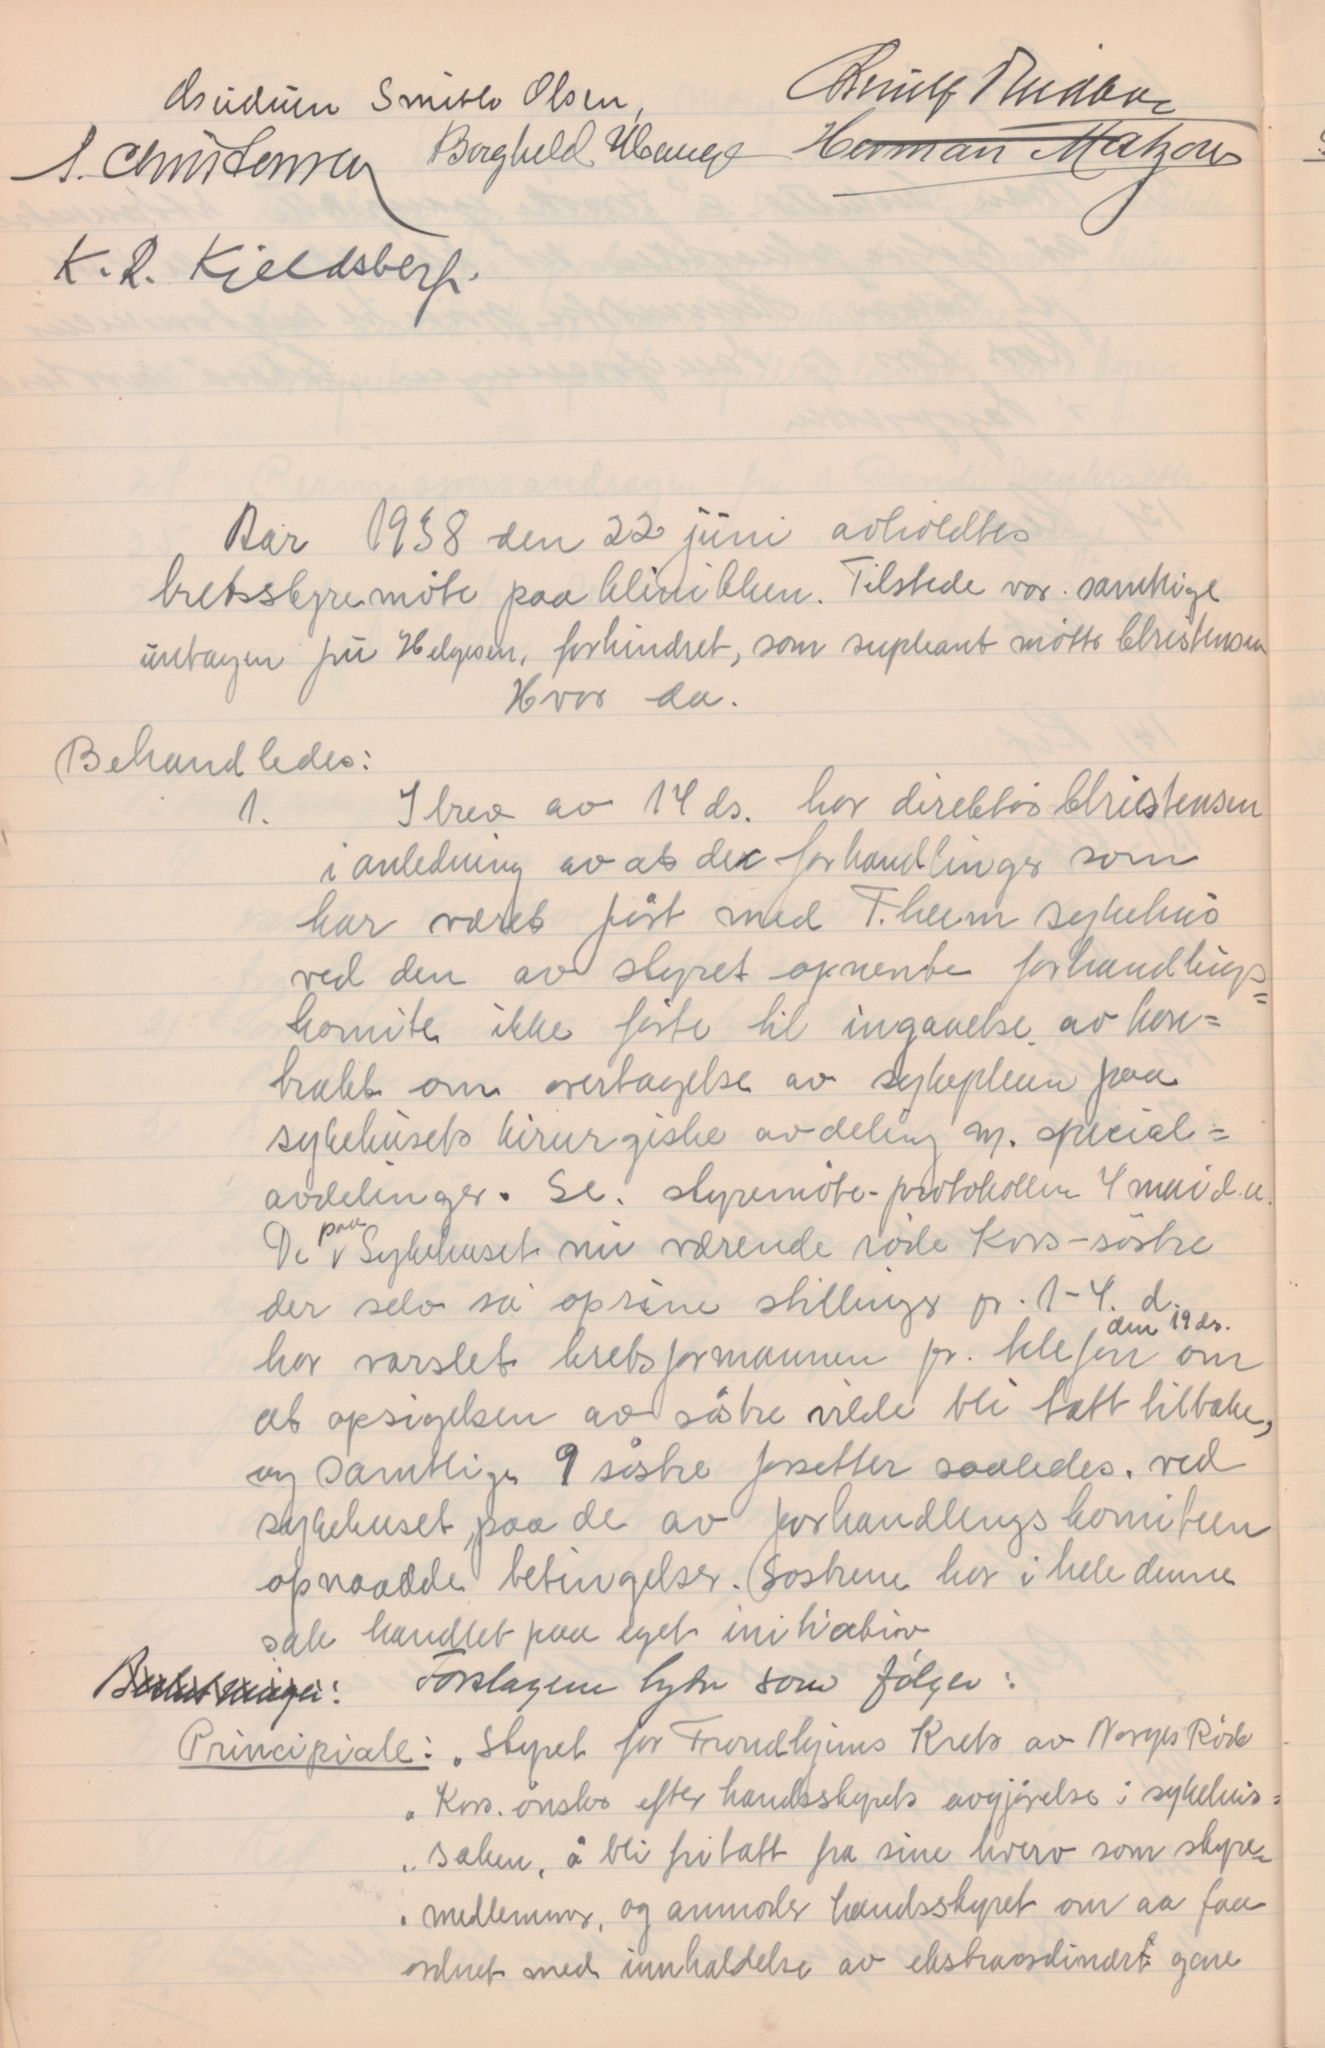 Smith Olsen,
S. Christensen Borghild Hauge Herman Matzow
K. R. Kjeldsberg.
Aar 1938 den 22 juni avholdtes
kretsstyremöte paa klinikken. Tilstede var samtlige
untagen fru Helgesen, forhindret, som supleant møtte Christensen
Hvor da.
Behandledes:
1. I brev av 14 ds. har direktör Christensen
i anledning av at de forhandlinger som
har været fört med T.heim sykehus
ved den av styret opnevnte forhandlings=
komite ikke förte til ingaaelse av kon=
trakt om overtagelse av sykepleien paa
sykehusets kirurgiske avdeling m. special=
avdelinger. Se. styremöte-protokollen 4 mai d.a.
De paa Sykehuset nu værende röde Kors-söstre
der selv sa op sine stillinger pr. 1-4. d.
har varslet kretsformannen pr. telefon den 19 ds. om
at opsigelsen av söstre vilde bli tatt tilbake,
og samtlige 9 söstre fortsetter saaledes ved
sykehuset, paa de av forhandlingskomiteen
opnaadde betingelser. Söstrene har i hele denne
sak handlet paa eget initiativ
Forslagene lyder som følger:
Principiale: „Styret for Trondhjems Krets av Norges Röde
„Kors önsker efter landsstyrets avgjörelse i sykehus=
„saken, å bli fritatt fra sine hverv som styre=
„medlemmer, og anmoder landsstyret om aa faa
ordnet med innkaldelse av ekstraordinært gene